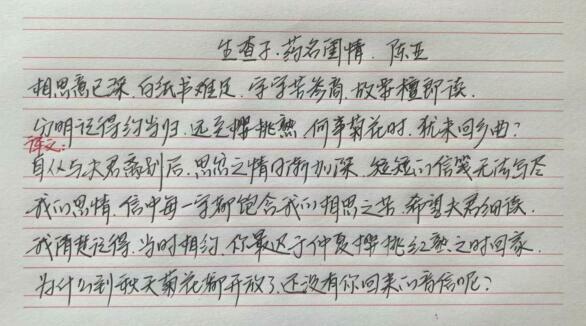 生查子·药名闺情 陈亚
相思意已深,白纸书难足,字字苦参商,故要檀郎读.
分明记得约当归,远至樱桃熟,何事菊花时,犹未回乡曲?
译文:
自从与夫君离别后,思念之情日渐加深,短短的信笺无法写尽
我的思情,信中每一字都饱含我的相思之苦,希望夫君细读.
我清楚记得,当时相约,你最迟于仲夏樱桃红熟之时回家,
为什么到秋天菊花都开放了,还没有你回来的音信呢?